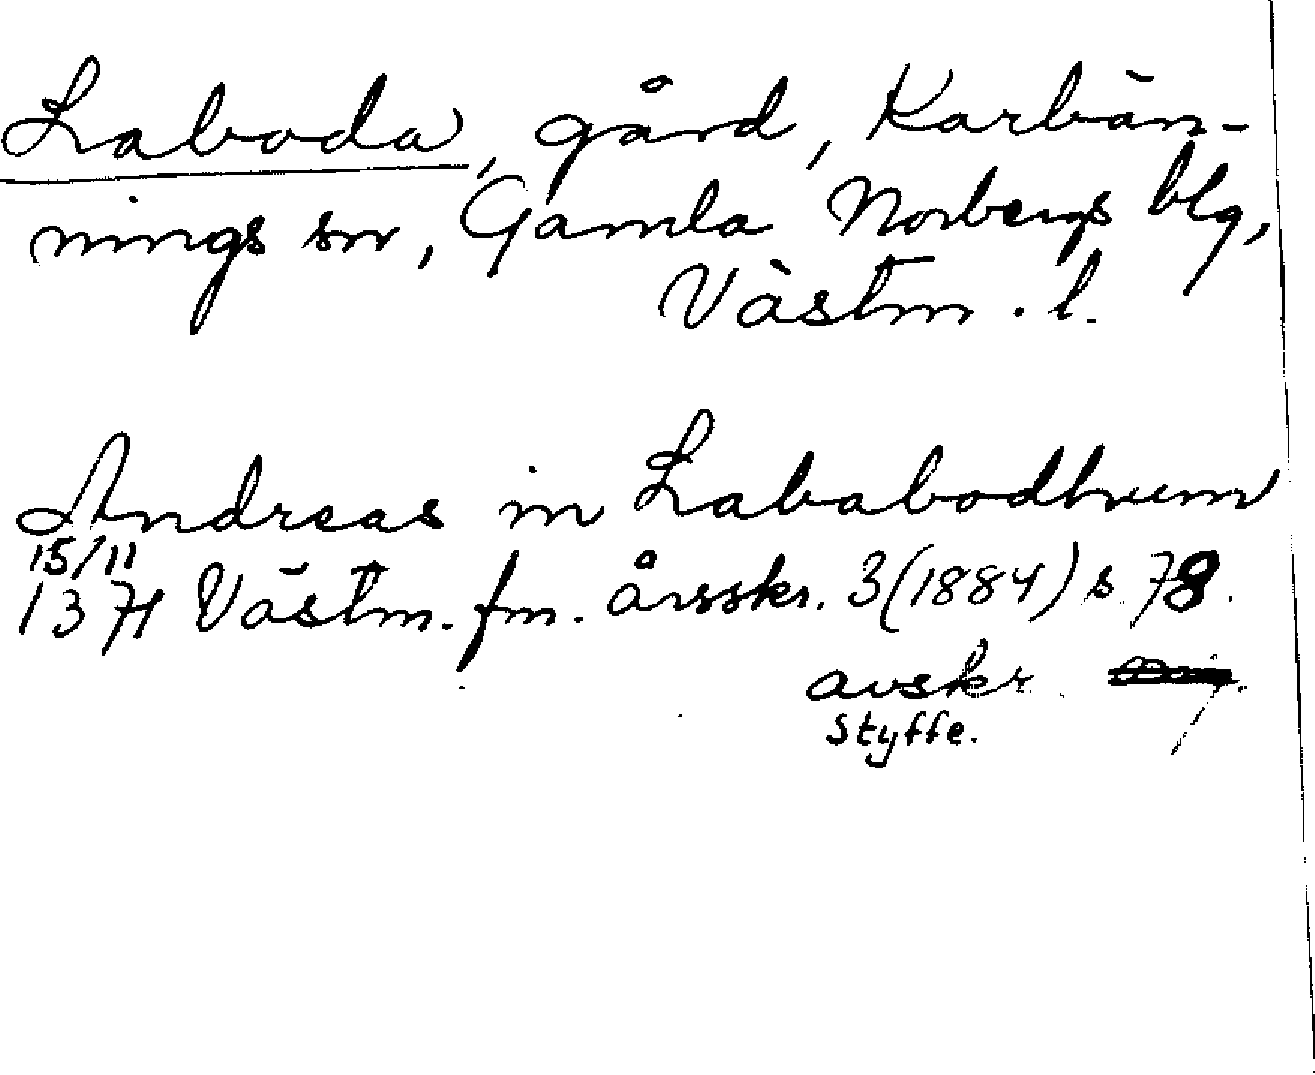 Laboda, gård, Karbän-
nings sn, Gamla Norbergs blg,
Västm. l.
Andreas in Lababodhum
15/11
1371 Västm. fm. årsskr. 3 (1884) s. 78.
avskr.
Styffe.